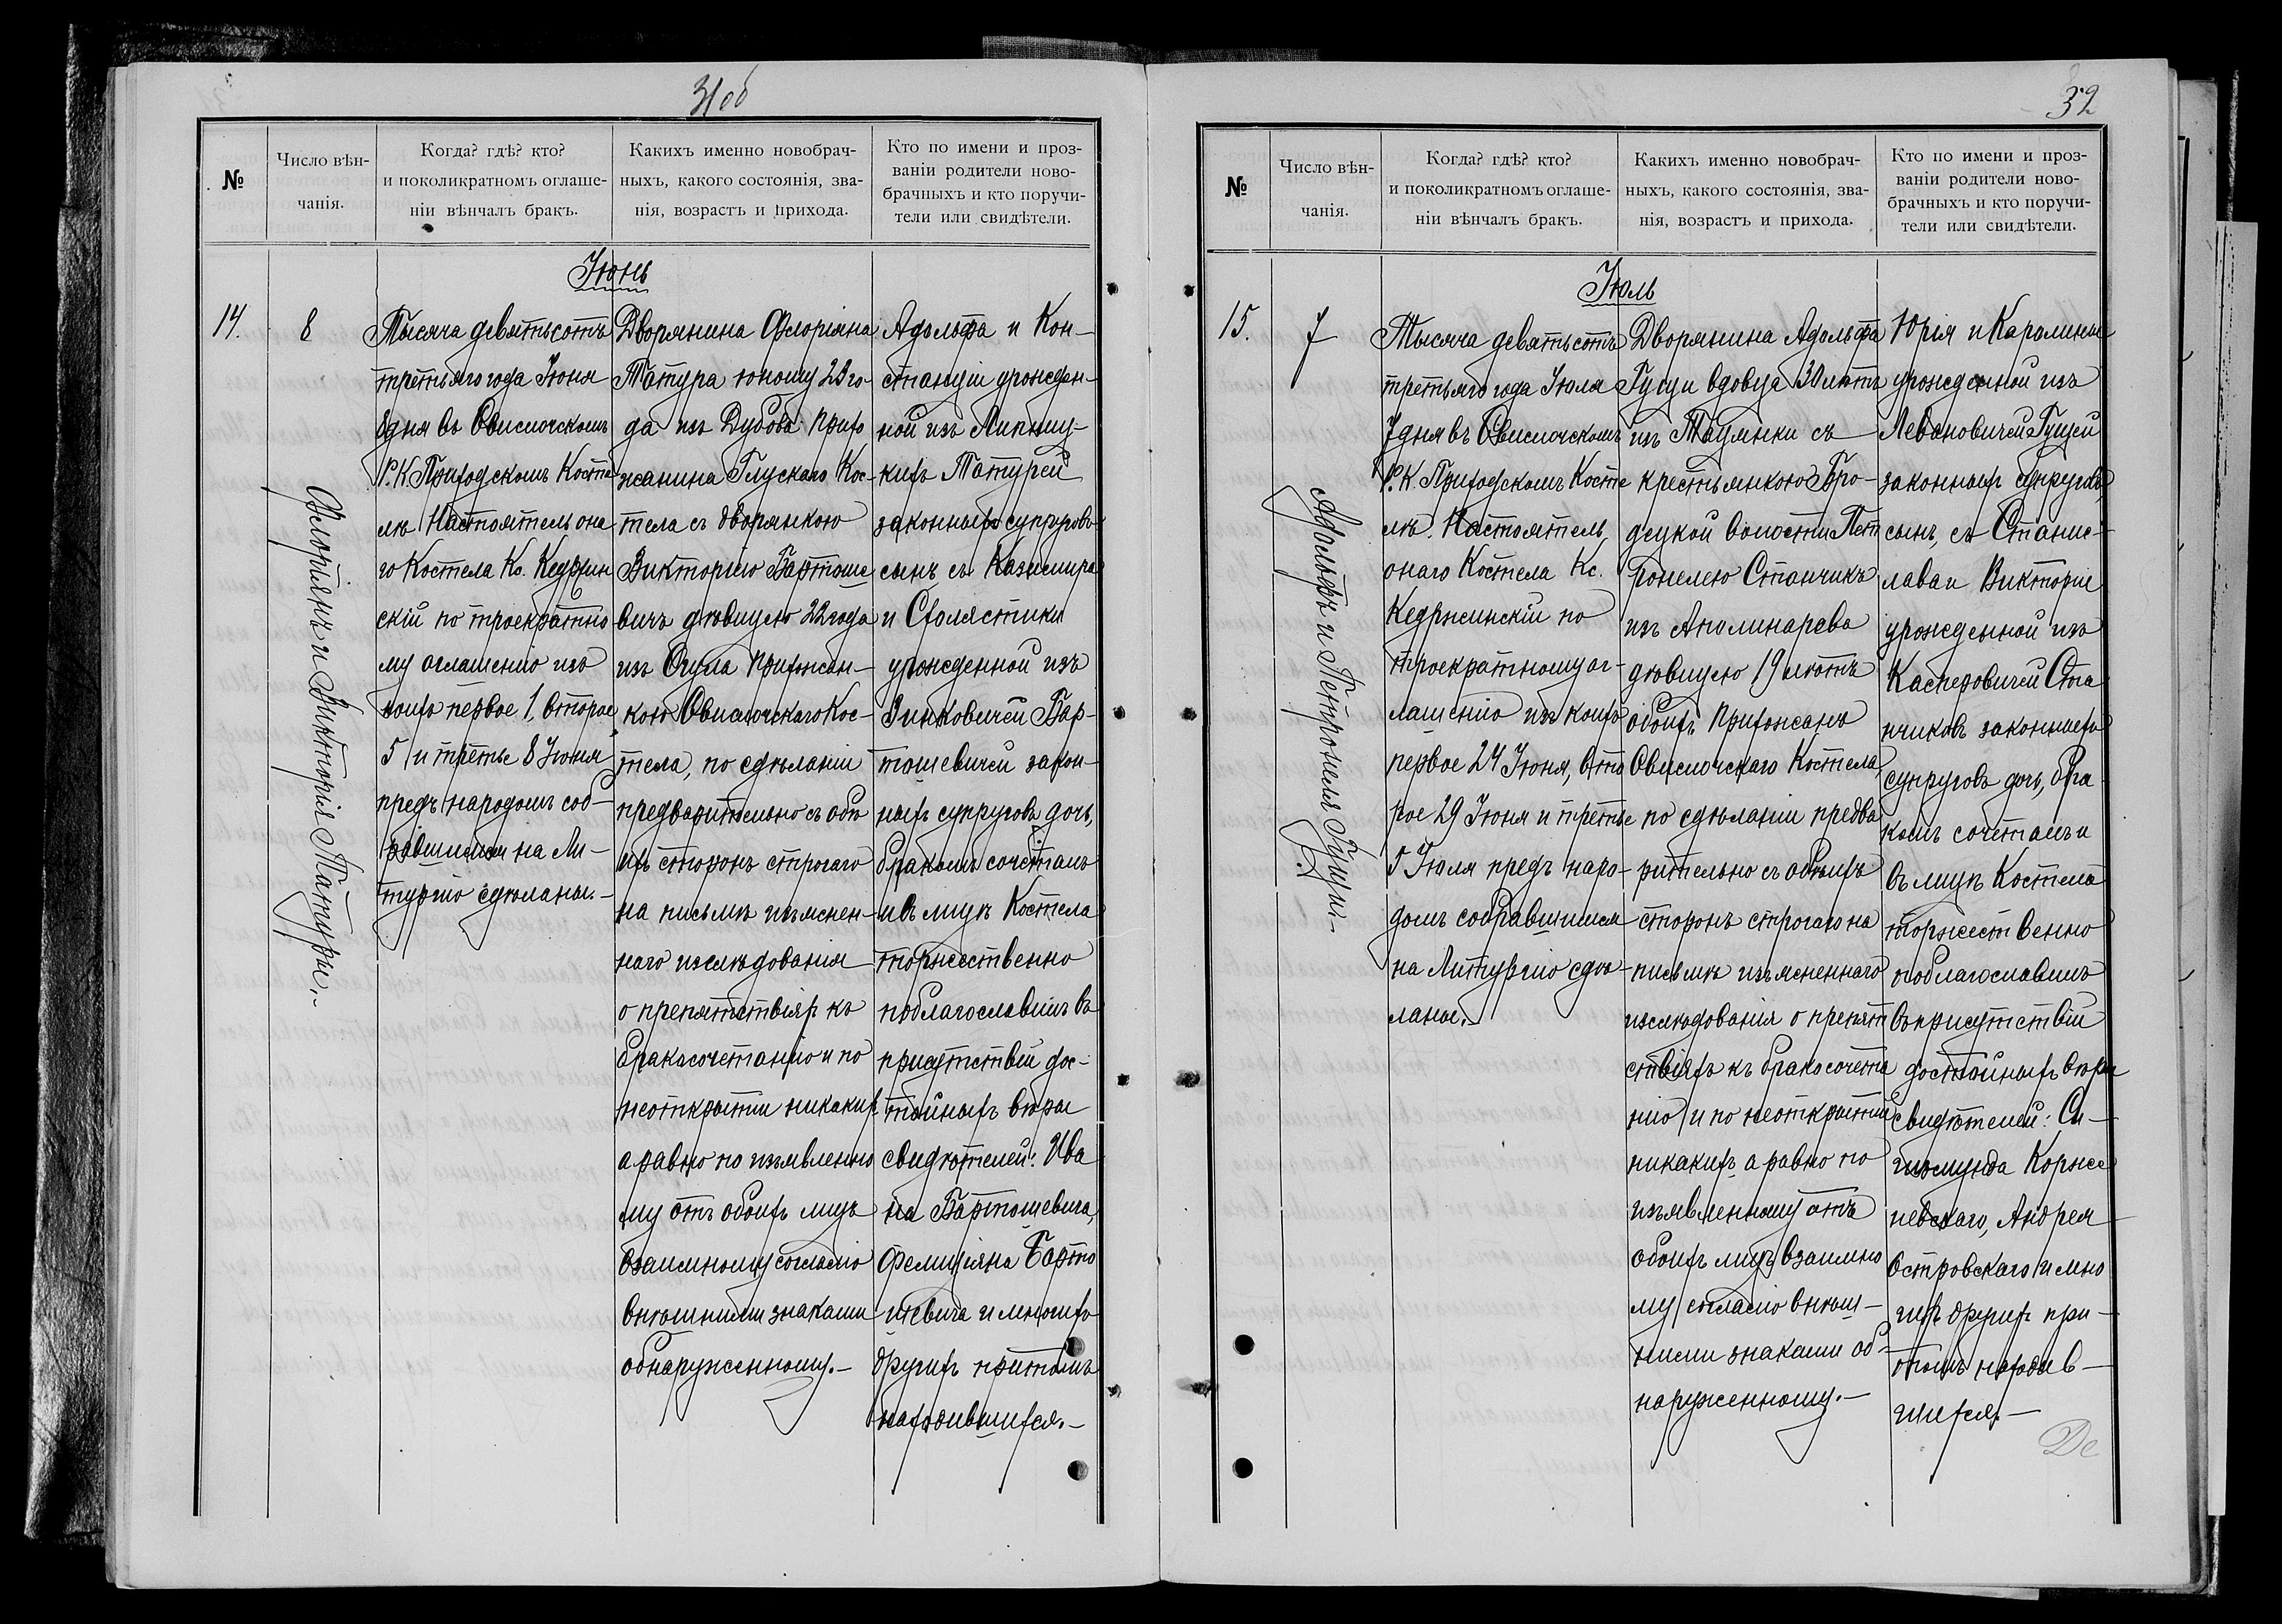 31об
№
Число вѣн-
чанія.
Когда? гдѣ? кто?
и поколикратномъ оглаше-
ніи вѣнчалъ бракъ.
Какихъ именно новобрач-
ныхъ, какого состоянія, зва-
нія, возрастъ и прихода.
Кто по имени и проз-
ваніи родители ново-
брачныхъ и кто поручи-
тели или свидѣтели.
Іюнь
14.
8
Флоріянъ и Викторія Татуры.-
Тысяча девятьсотъ
третьяго года Іюня
8 дня въ Свислочскомъ
Р. К. Приходскомъ Косте
лѣ Настоятель она
го Костела Кс. Кедржин
скій по троекратно
му оглашенію изъ
коихъ первое 1, второе
5 и третье 8 Іюня
предъ народомъ соб-
равшимся на Ли-
тургію сдѣланы.-
Дворянина Флоріяна
Татура юношу 23 го-
да изъ Дубова прихо
жанина Глускаго Кос-
тела съ дворянкою
Викторіею Бартоше
вичъ дѣвицею 22 года
изъ прихожан-
кою Свислочскаго Кос-
тела, по сдѣланіи
предварительно съ обѣ
ихъ сторонъ строгаго
на письмѣ изъяснен-
наго изслѣдованія
о препятствіяхъ къ
бракосочетанію и по
неоткрытіи никакихъ
а равно по изъявленно
му отъ обоихъ лицъ
взаимному согласію
внѣшними знаками
обнаруженному.-
Адольфа и Кон-
станціи урожден-
ной изъ
Татурей
законныхъ супруговъ
сынъ съ Казимира
и Схолястики
урожденной изъ
Зинковичей Бар-
тошевичей закон-
ныхъ супруговъ дочь,
бракомъ сочеталъ
и въ лицѣ Костела
торжественно
поблагословилъ въ
присутствіи дос-
тойныхъ вѣры
свидѣтелей: Ива
на Бартошевича,
Фелиціяна Барто
шевича и многихъ
другихъ притомъ
находившихся.-
32
№
Число вѣн-
чанія.
Когда? гдѣ? кто?
и поколикратномъ оглаше-
ніи вѣнчалъ бракъ.
Какихъ именно новобрач-
ныхъ, какого состоянія, зва-
нія, возрастъ и прихода.
Кто по имени и проз-
ваніи родители ново-
брачныхъ и кто поручи-
тели или свидѣтели.
Іюль
15.
7
Адольфъ и Петронеля Гущи.-
Тысяча девятьсотъ
третьяго года Іюля
7 дня въ Свислочскомъ
Р. К. Приходскомъ Косте
лѣ. Настоятель,
онаго Костела Кс.
Кедржинскій по
троекратному ог-
лашенію изъ коихъ
первое 24 Іюня, вто
рое 29 Іюня и третье
5 Іюля предъ наро-
домъ собравшимся
на Литургію сдѣ-
ланы.-
Дворянина Адольфа
Гущи вдовца 30 лѣтъ
изъ съ
крестьянкою Бро-
децкой волости Пет
ронелею Станчикъ
изъ Аполинарева
дѣвицею 19 лѣтъ
обоихъ прихожанъ
Свислочскаго Костела,
по сдѣланіи предва
рительно съ обѣихъ
сторонъ строгаго на
письмѣ изъясненнаго
изслѣдованія о препят
ствіяхъ къ бракосочета
нію и по неоткрытіи
никакихъ а равно по
изъявленному отъ
обоихъ лицъ взаимно
му согласію внѣш-
ними знаками об-
наруженному.-
Юрія и Каролины
урожденной изъ
Левоновичей Гущей
законныхъ супруговъ
сынъ, съ Станис-
лава и Викторіи
урожденной изъ
Касперовичей Ста
нчиковъ законныхъ
супруговъ дочь, бра
комъ сочеталъ и
въ лицѣ Костела
торжественно
поблагословилъ
въ присутствіи
достойныхъ вѣры
свидѣтелей: Си-
гизмунда Корже
невскаго, Андрея
Островскаго и мно
гихъ другихъ при-
томъ находив-
шихся.-